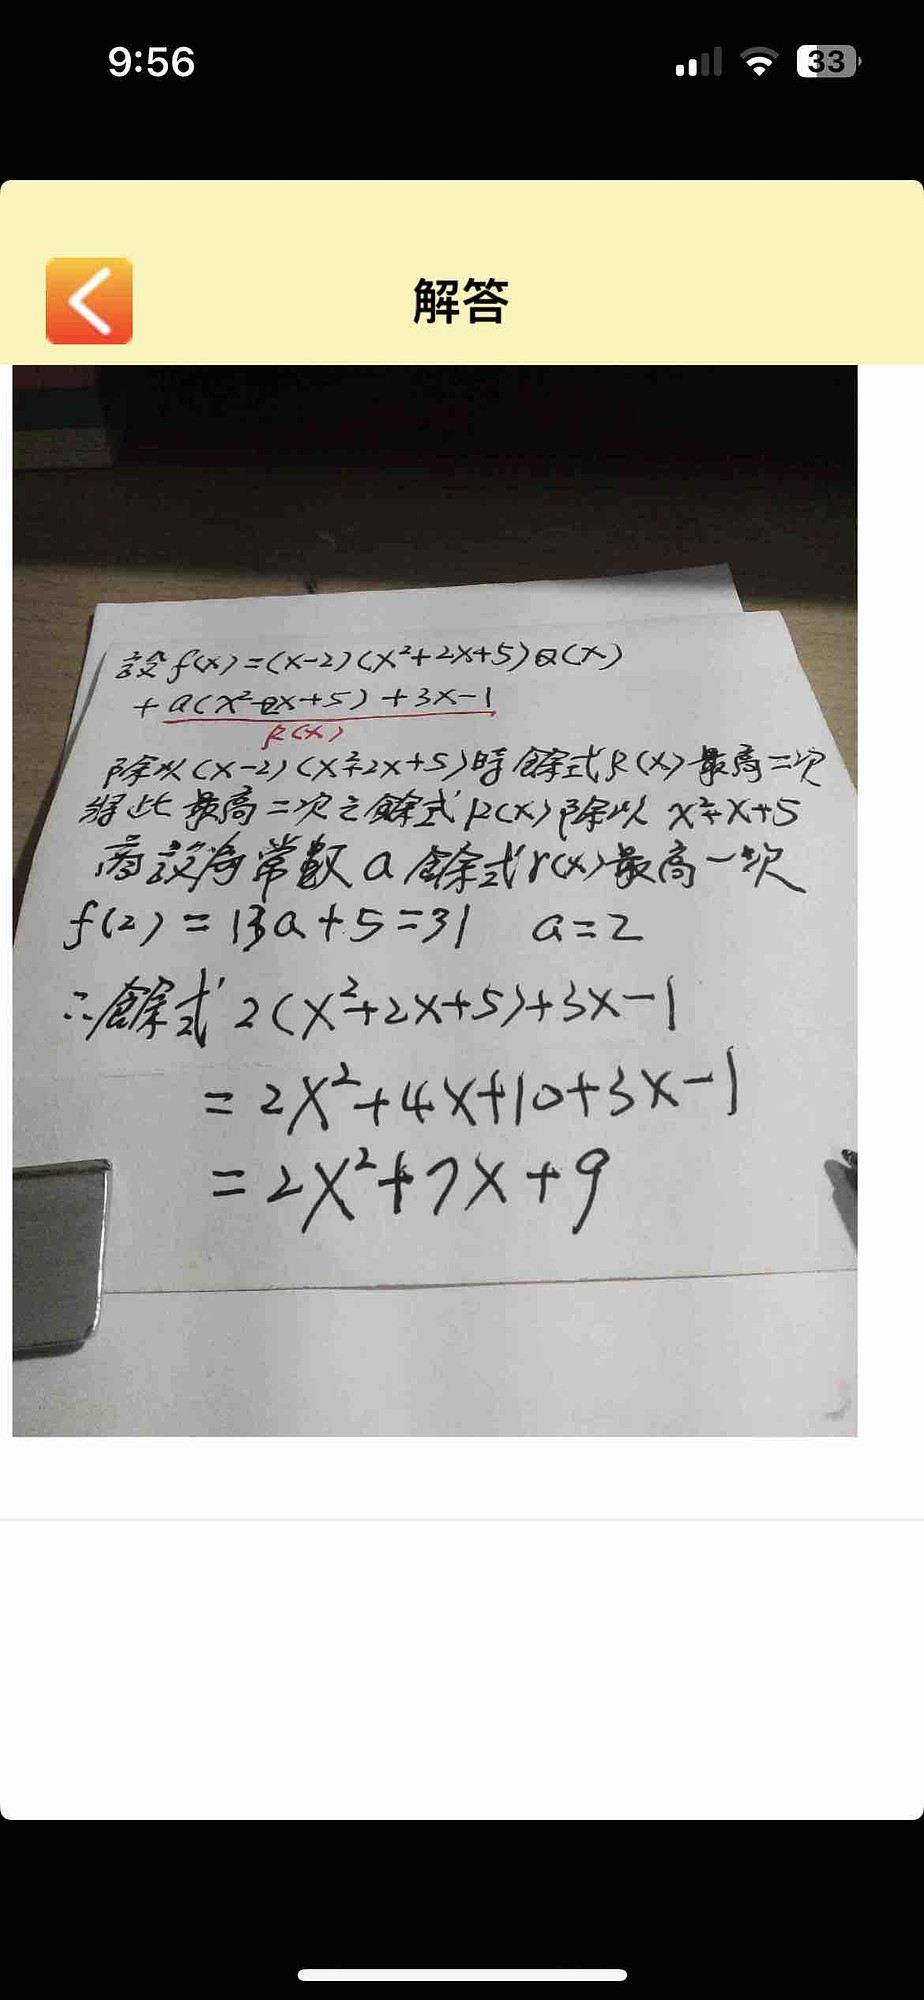 9:56
33
解答
設 f(x)=(x-2)(x²+2x+5)Q(x)
+a(x²-2x+5)+3x-1
R(x)
除以(x-2)(x²+2x+5)時餘式R(x)最高二次
將此最高二次之餘式R(x)除以 x²+x+5
商設為常數a 餘式r(x)最高一次
f(2)=13a+5=31 a=2
∴餘式 2(x²+2x+5)+3x-1
=2x²+4x+10+3x-1
=2x²+7x+9